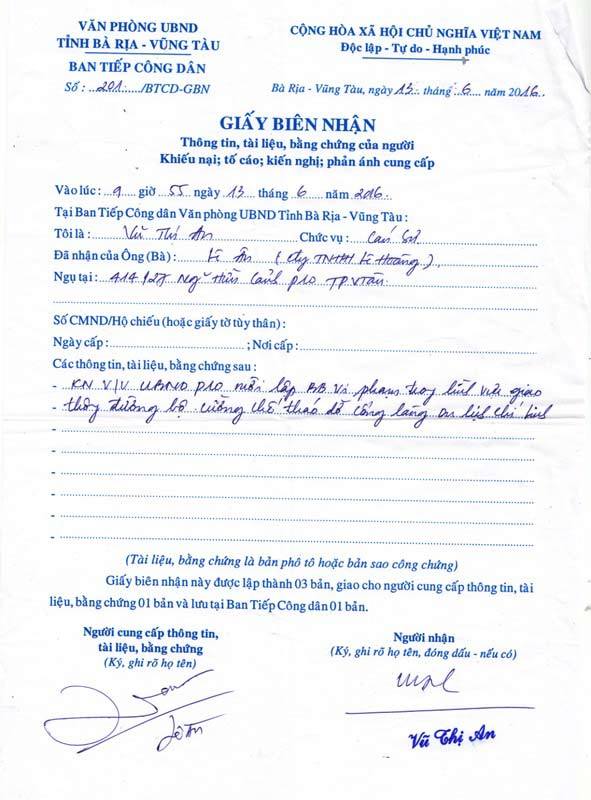 VĂN PHÒNG UBND
TỈNH BÀ RỊA - VŨNG TÀU
BAN TIẾP CÔNG DÂN
Số : ..201..../BTCD-GBN
CỘNG HÒA XÃ HỘI CHỦ NGHĨA VIỆT NAM
Độc lập - Tự do - Hạnh phúc
Bà Rịa - Vũng Tàu, ngày 13 tháng 6 năm 2016
GIẤY BIÊN NHẬN
Thông tin, tài liệu, bằng chứng của người
Khiếu nại; tố cáo; kiến nghị; phản ánh cung cấp
Vào lúc : 9 giờ 55 ngày 13 tháng 6 năm 2016
Tại Ban Tiếp Công dân Văn phòng UBND Tỉnh Bà Rịa - Vũng Tàu :
Tôi là : Vũ Thị An Chức vụ : Cán sự
Đã nhận của Ông (Bà) : Lê Ân (Cty TNHH Lê Hoàng)
Ngụ tại : 414/27 Ng~ Hữu Cảnh P10 TP.VTàu
Số CMND/Hộ chiếu (hoặc giấy tờ tùy thân) :
Ngày cấp : ; Nơi cấp :
Các thông tin, tài liệu, bằng chứng sau :
- KN V/V UBND P10 mời lập BB vi phạm trong lĩnh vực giao
- thông đường bộ cưỡng chế tháo dỡ cổng làng du lịch Chí Linh
-
-
-
-
-
(Tài liệu, bằng chứng là bản phô tô hoặc bản sao công chứng)
Giấy biên nhận này được lập thành 03 bản, giao cho người cung cấp thông tin, tài
liệu, bằng chứng 01 bản và lưu tại Ban Tiếp Công dân 01 bản.
Người cung cấp thông tin,
tài liệu, bằng chứng
(Ký, ghi rõ họ tên)
Lê Ân
Người nhận
(Ký, ghi rõ họ tên, đóng dấu - nếu có)
Vũ Thị An